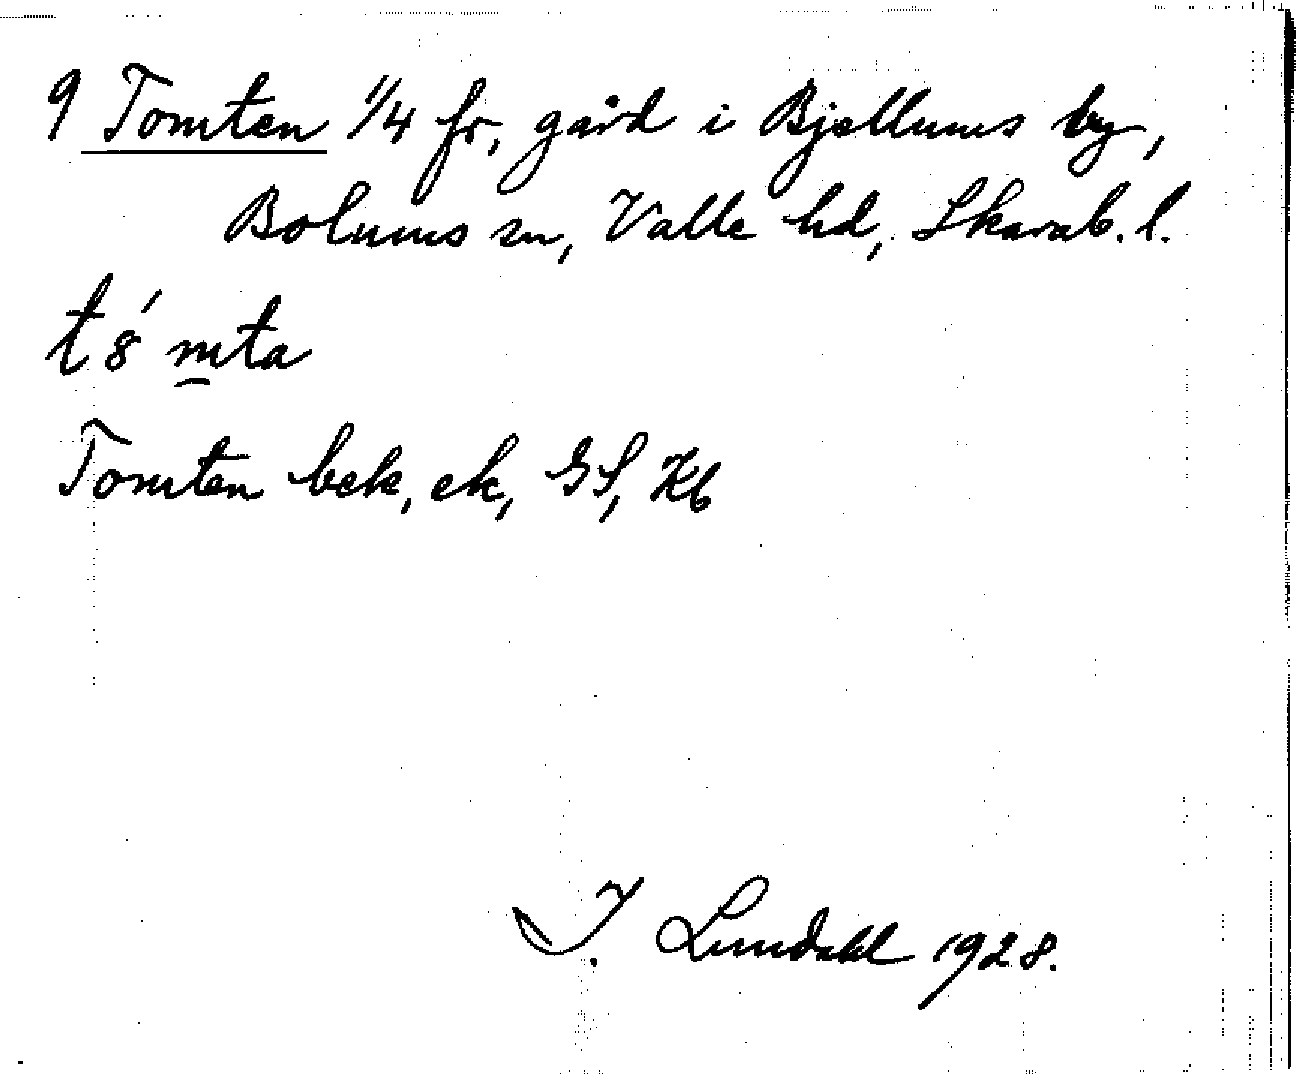 9 Tomten 1/4 fr, gård i Bjellums by,
Bolums sn, Valle hd, Skarab. l.
t 8́ mta
Tomten bek, ek, GS, Kb
I. Lundahl 1928.